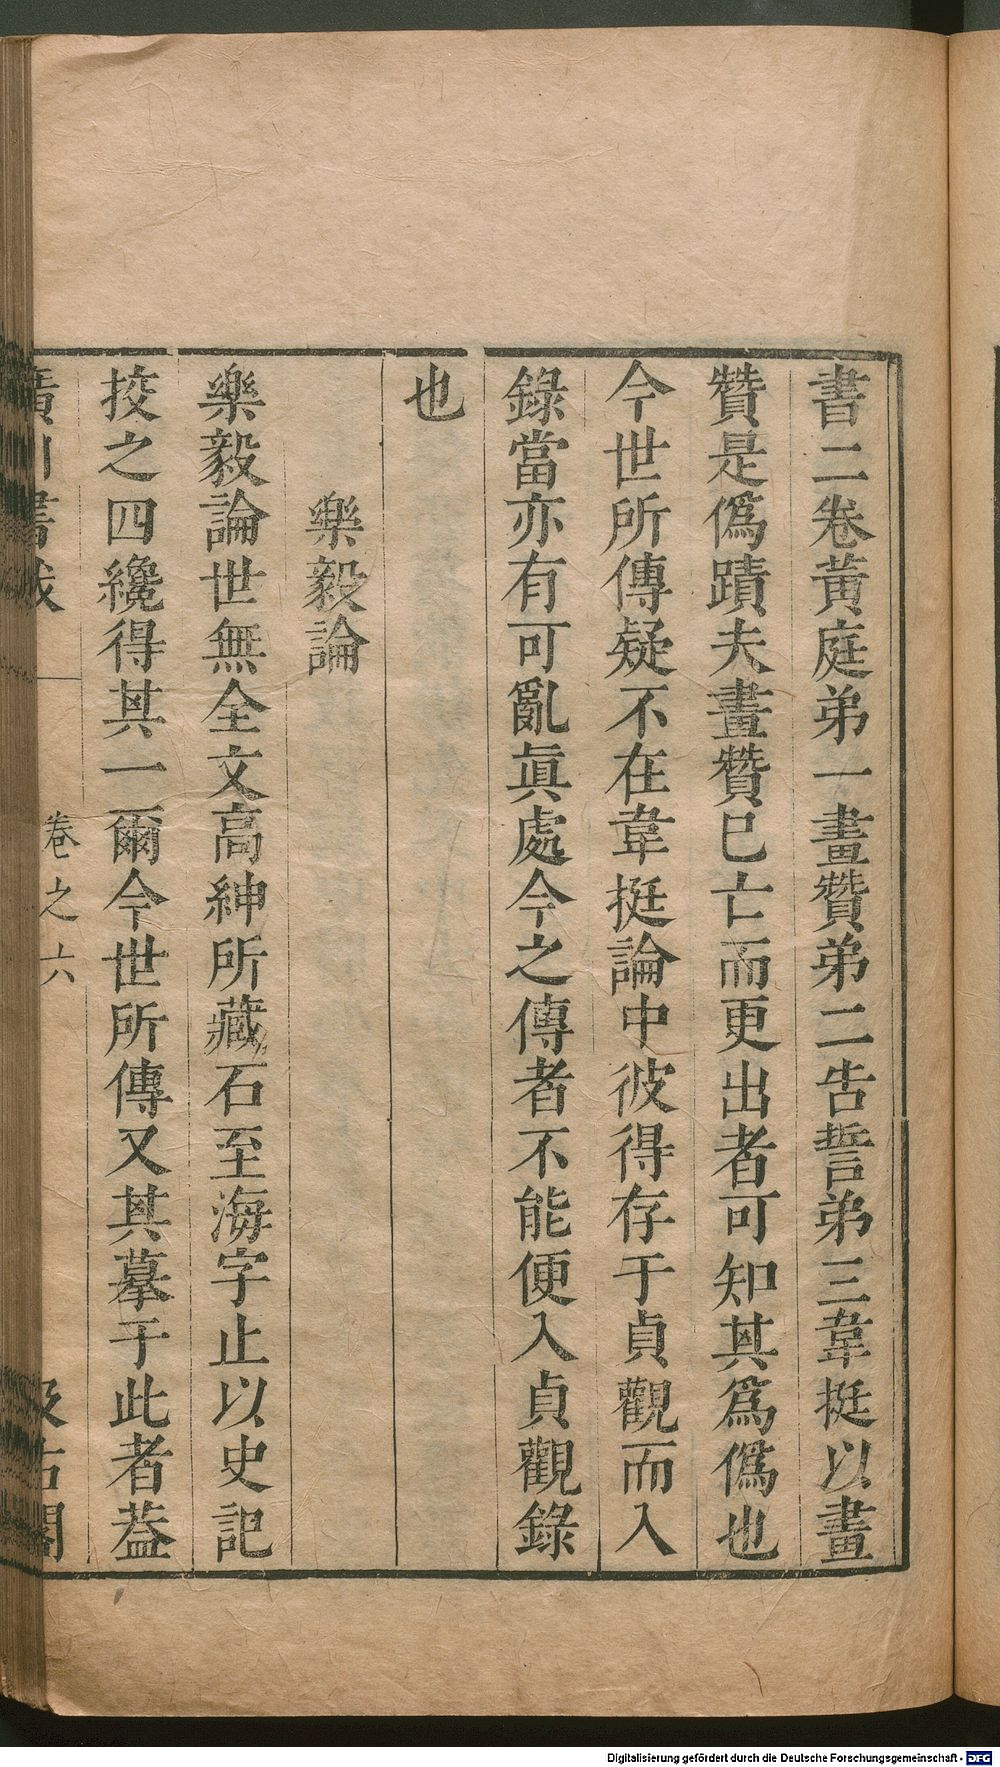 書二卷黃庭弟一畫贊弟二告誓弟三韋挺以畫
贊是僞蹟夫畫贊已亡而更出者可知其爲僞也
今世所傳疑不在韋挺論中彼得存于貞觀而入
錄當亦有可亂眞處今之傳者不能便入貞觀錄
也
樂毅論
樂毅論世無全文高紳所藏石至海字止以史記
挍之四纔得其一爾今世所傳又其摹于此者葢
廣川書跋
卷之六
汲古閣
Digitalisierung gefördert durch die Deutsche Forschungsgemeinschaft - DFG